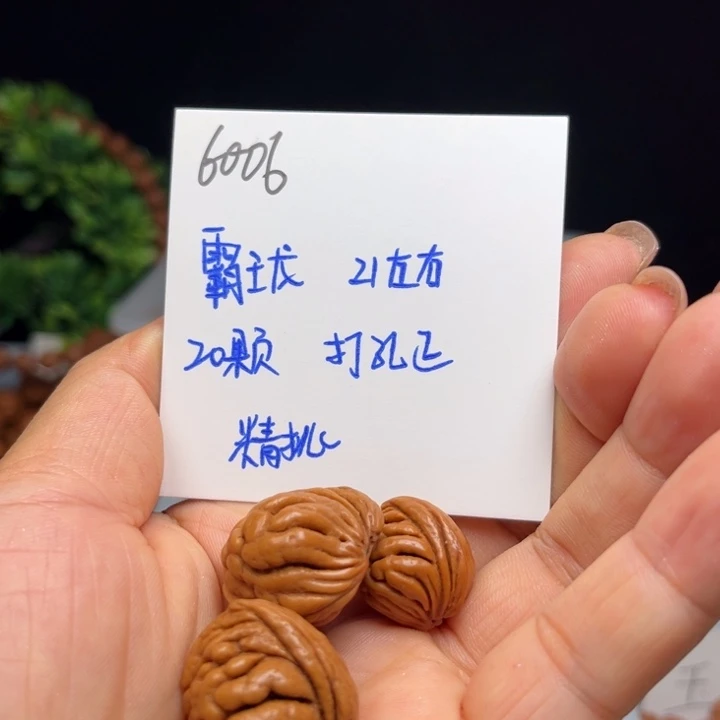 6006
霸王龙 21左右
20颗 打孔正
精挑